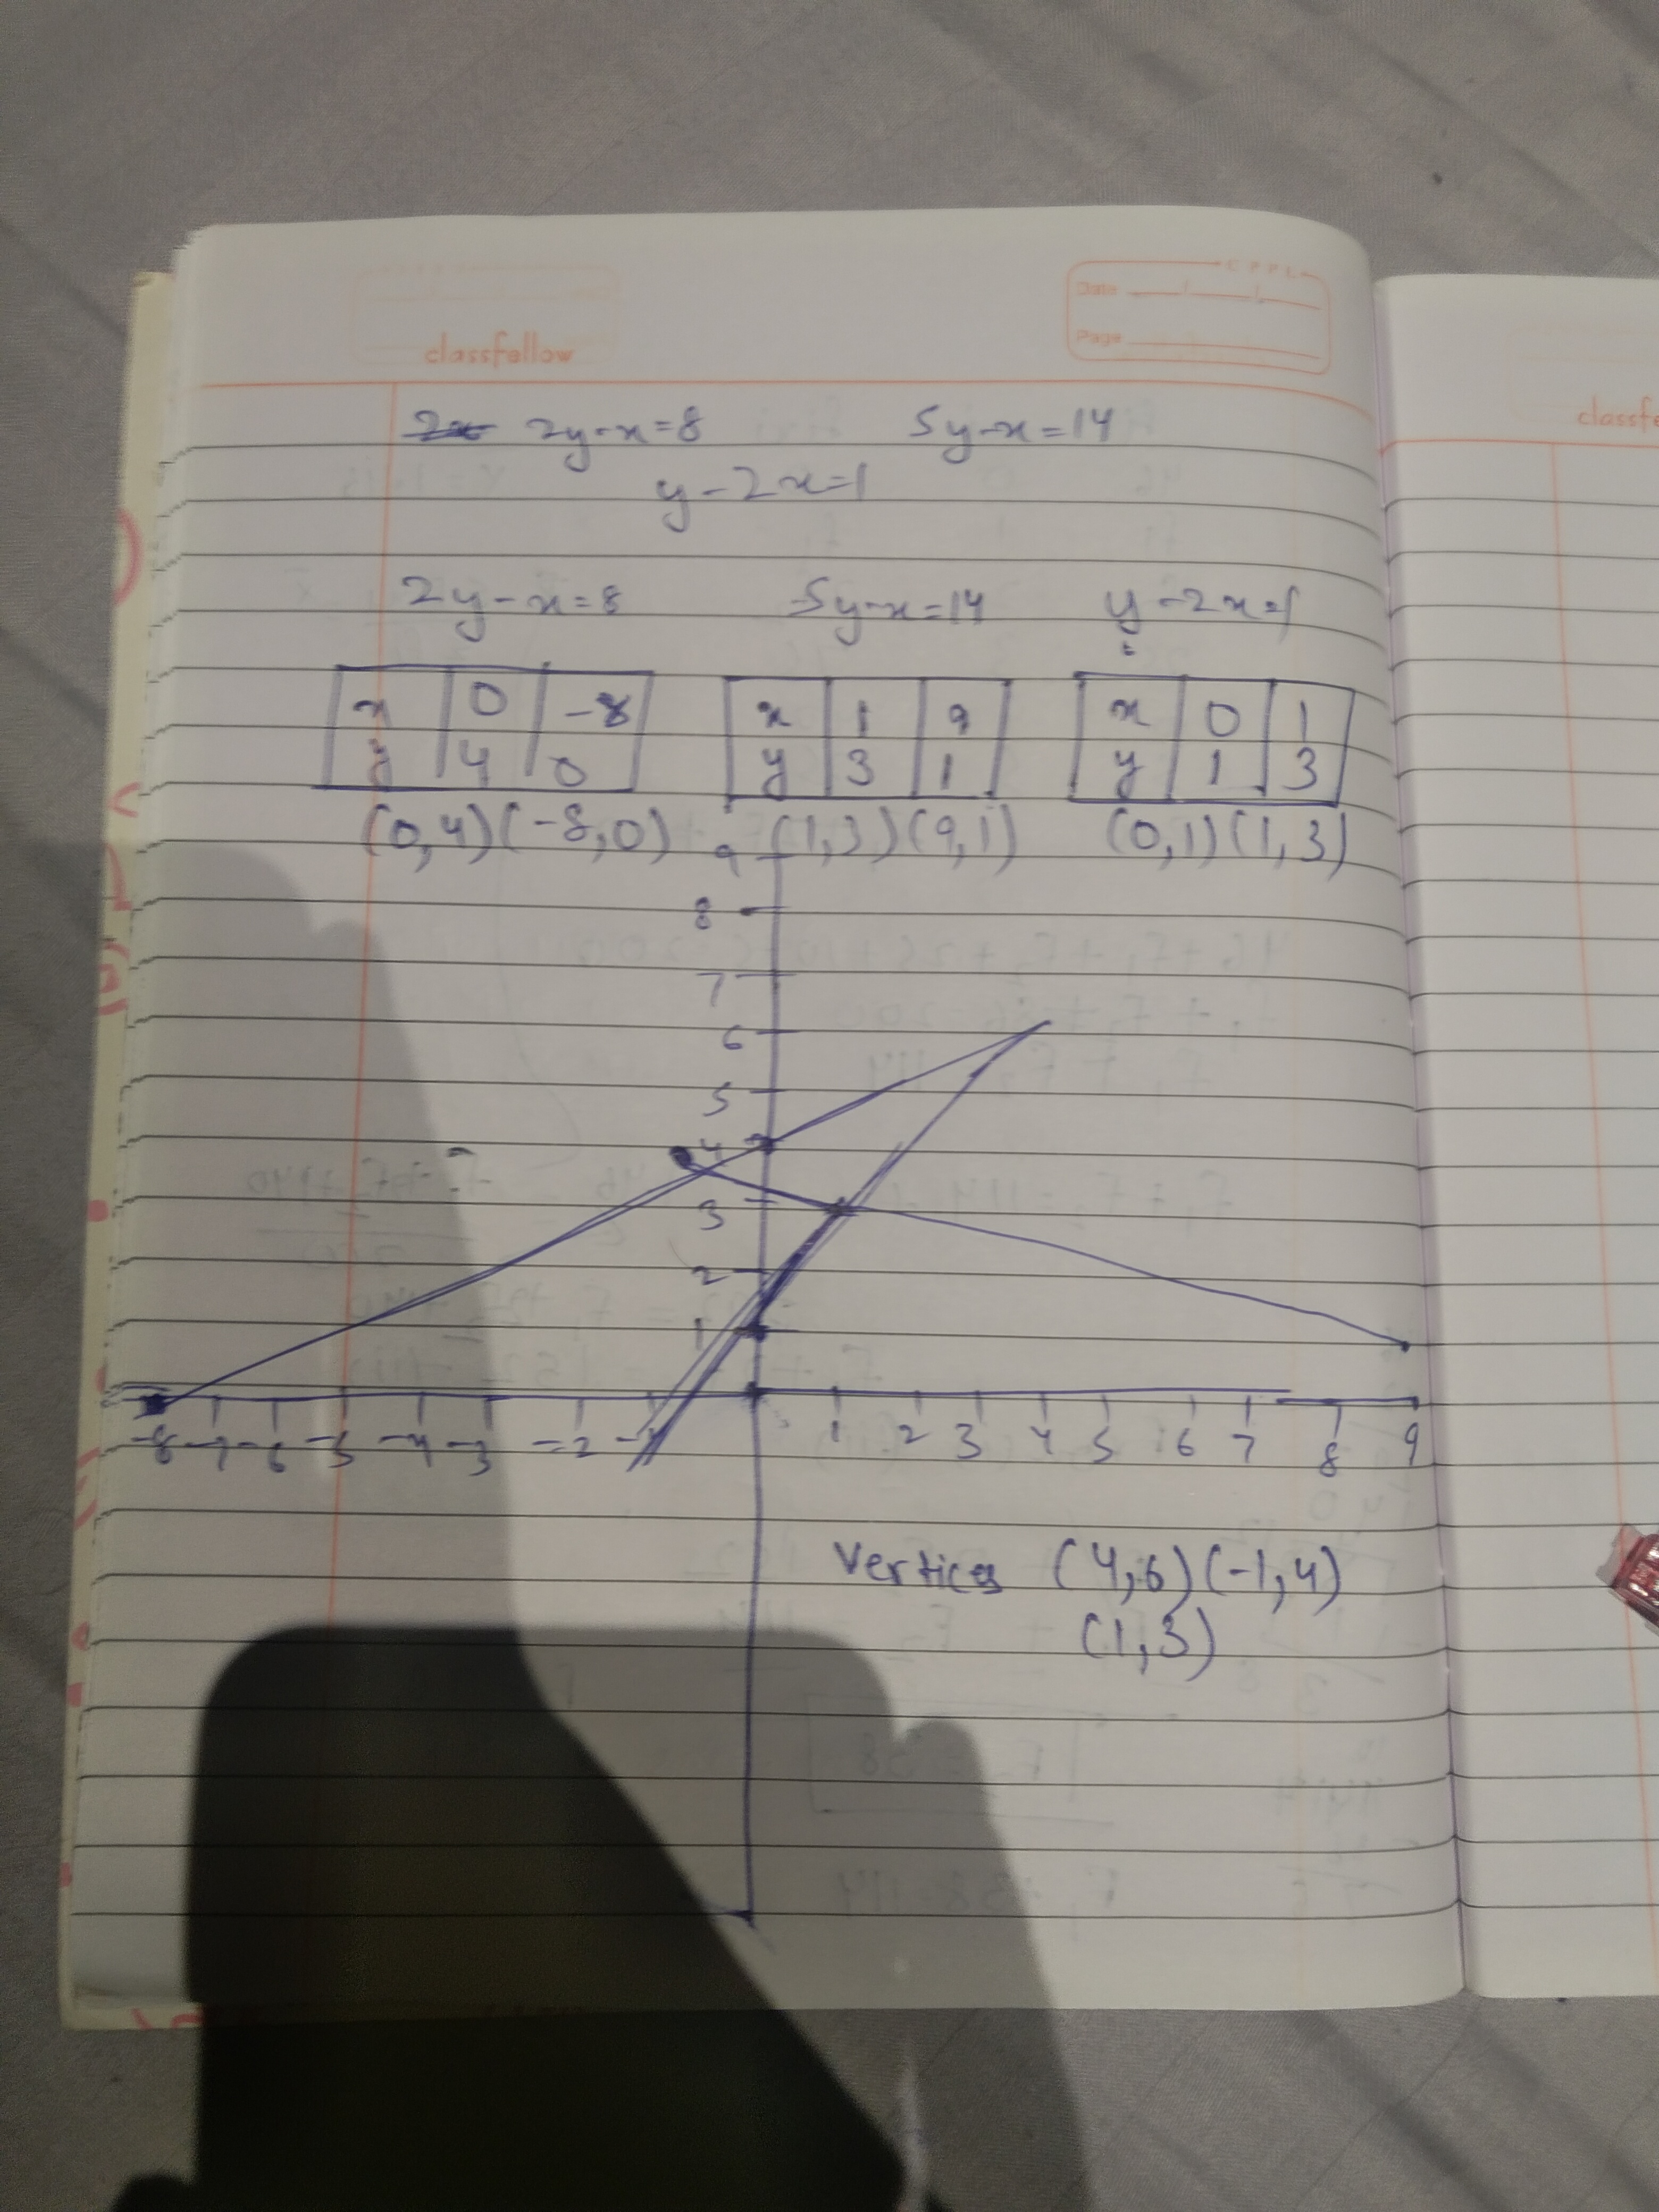 C P P L
Date
classfellow
Page
classfe
2y-x=8 5y-x=14
y-2x=1
2y-x=8 5y-x=14 y-2x=1
x 0 -8 x 1 9 x 0 1
y 4 0 y 3 1 y 1 3
(0,4)(-8,0) (1,3)(9,1) (0,1)(1,3)
9
8
7
6
5
4
3
2
1
-8 -7 -6 -5 -4 -3 -2 -1 1 2 3 4 5 6 7 8 9
Vertices (4,6)(-1,4)
(1,3)